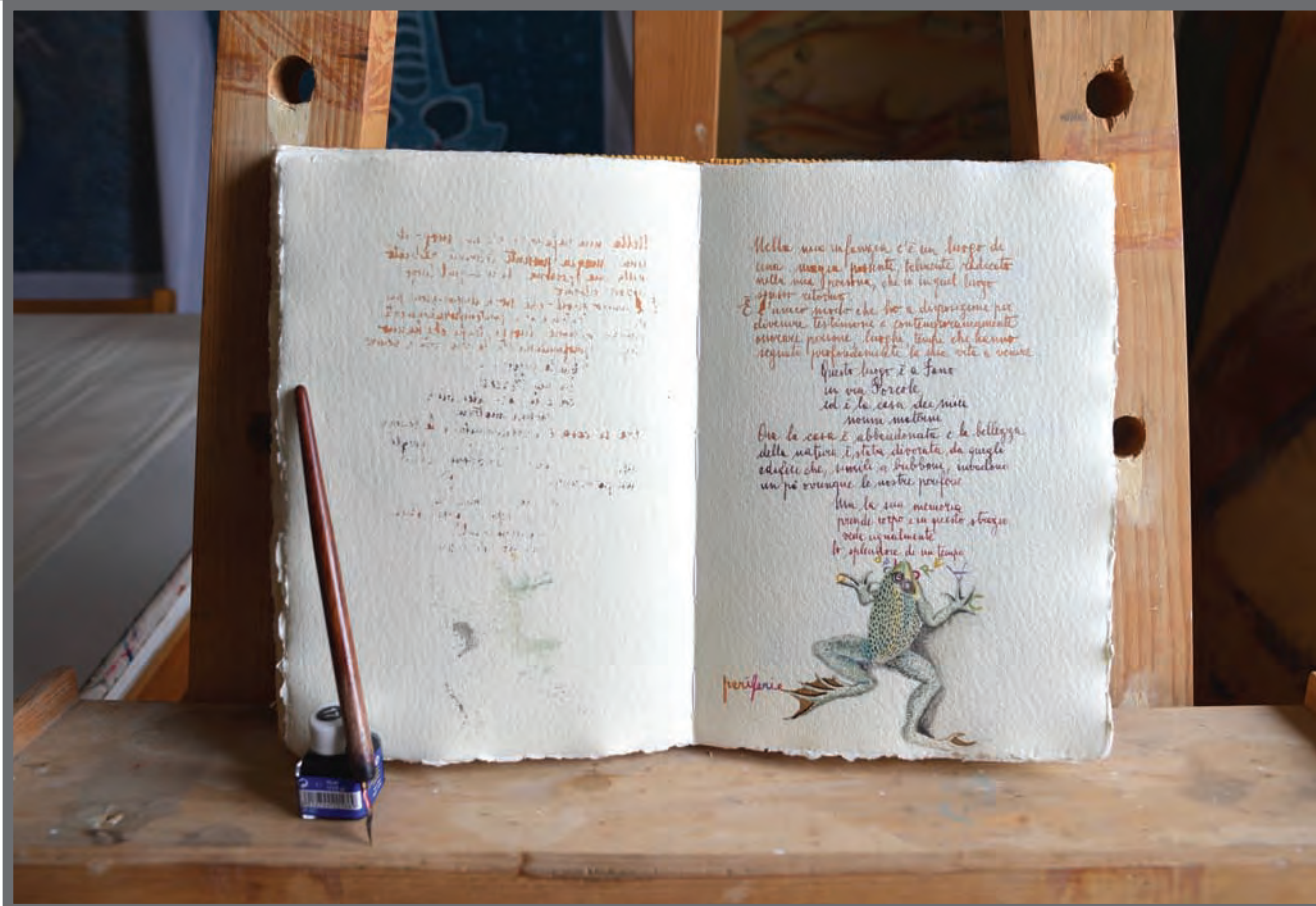 Nella mia infanzia c'è un luogo di
una magia potente, talmente radicato
nella mia persona, che io in quel luogo
spesso ritorno.
È l'unico modo che ho a disposizione per
divenire testimone e contemporaneamente
onorare persone luoghi tempi che hanno
segnato profondamente la mia vita a venire
Questo luogo è a Fano
in via Forcole
ed è la casa dei miei
nonni materni
Ora la casa è abbandonata e la bellezza
della natura è stata divorata da quegli
edifici che, simili a bubboni, invadono
un pò ovunque le nostre periferie
Ma la sua memoria
prende corpo e in questo strazio
vede ugualmente
lo splendore di un tempo
periferie